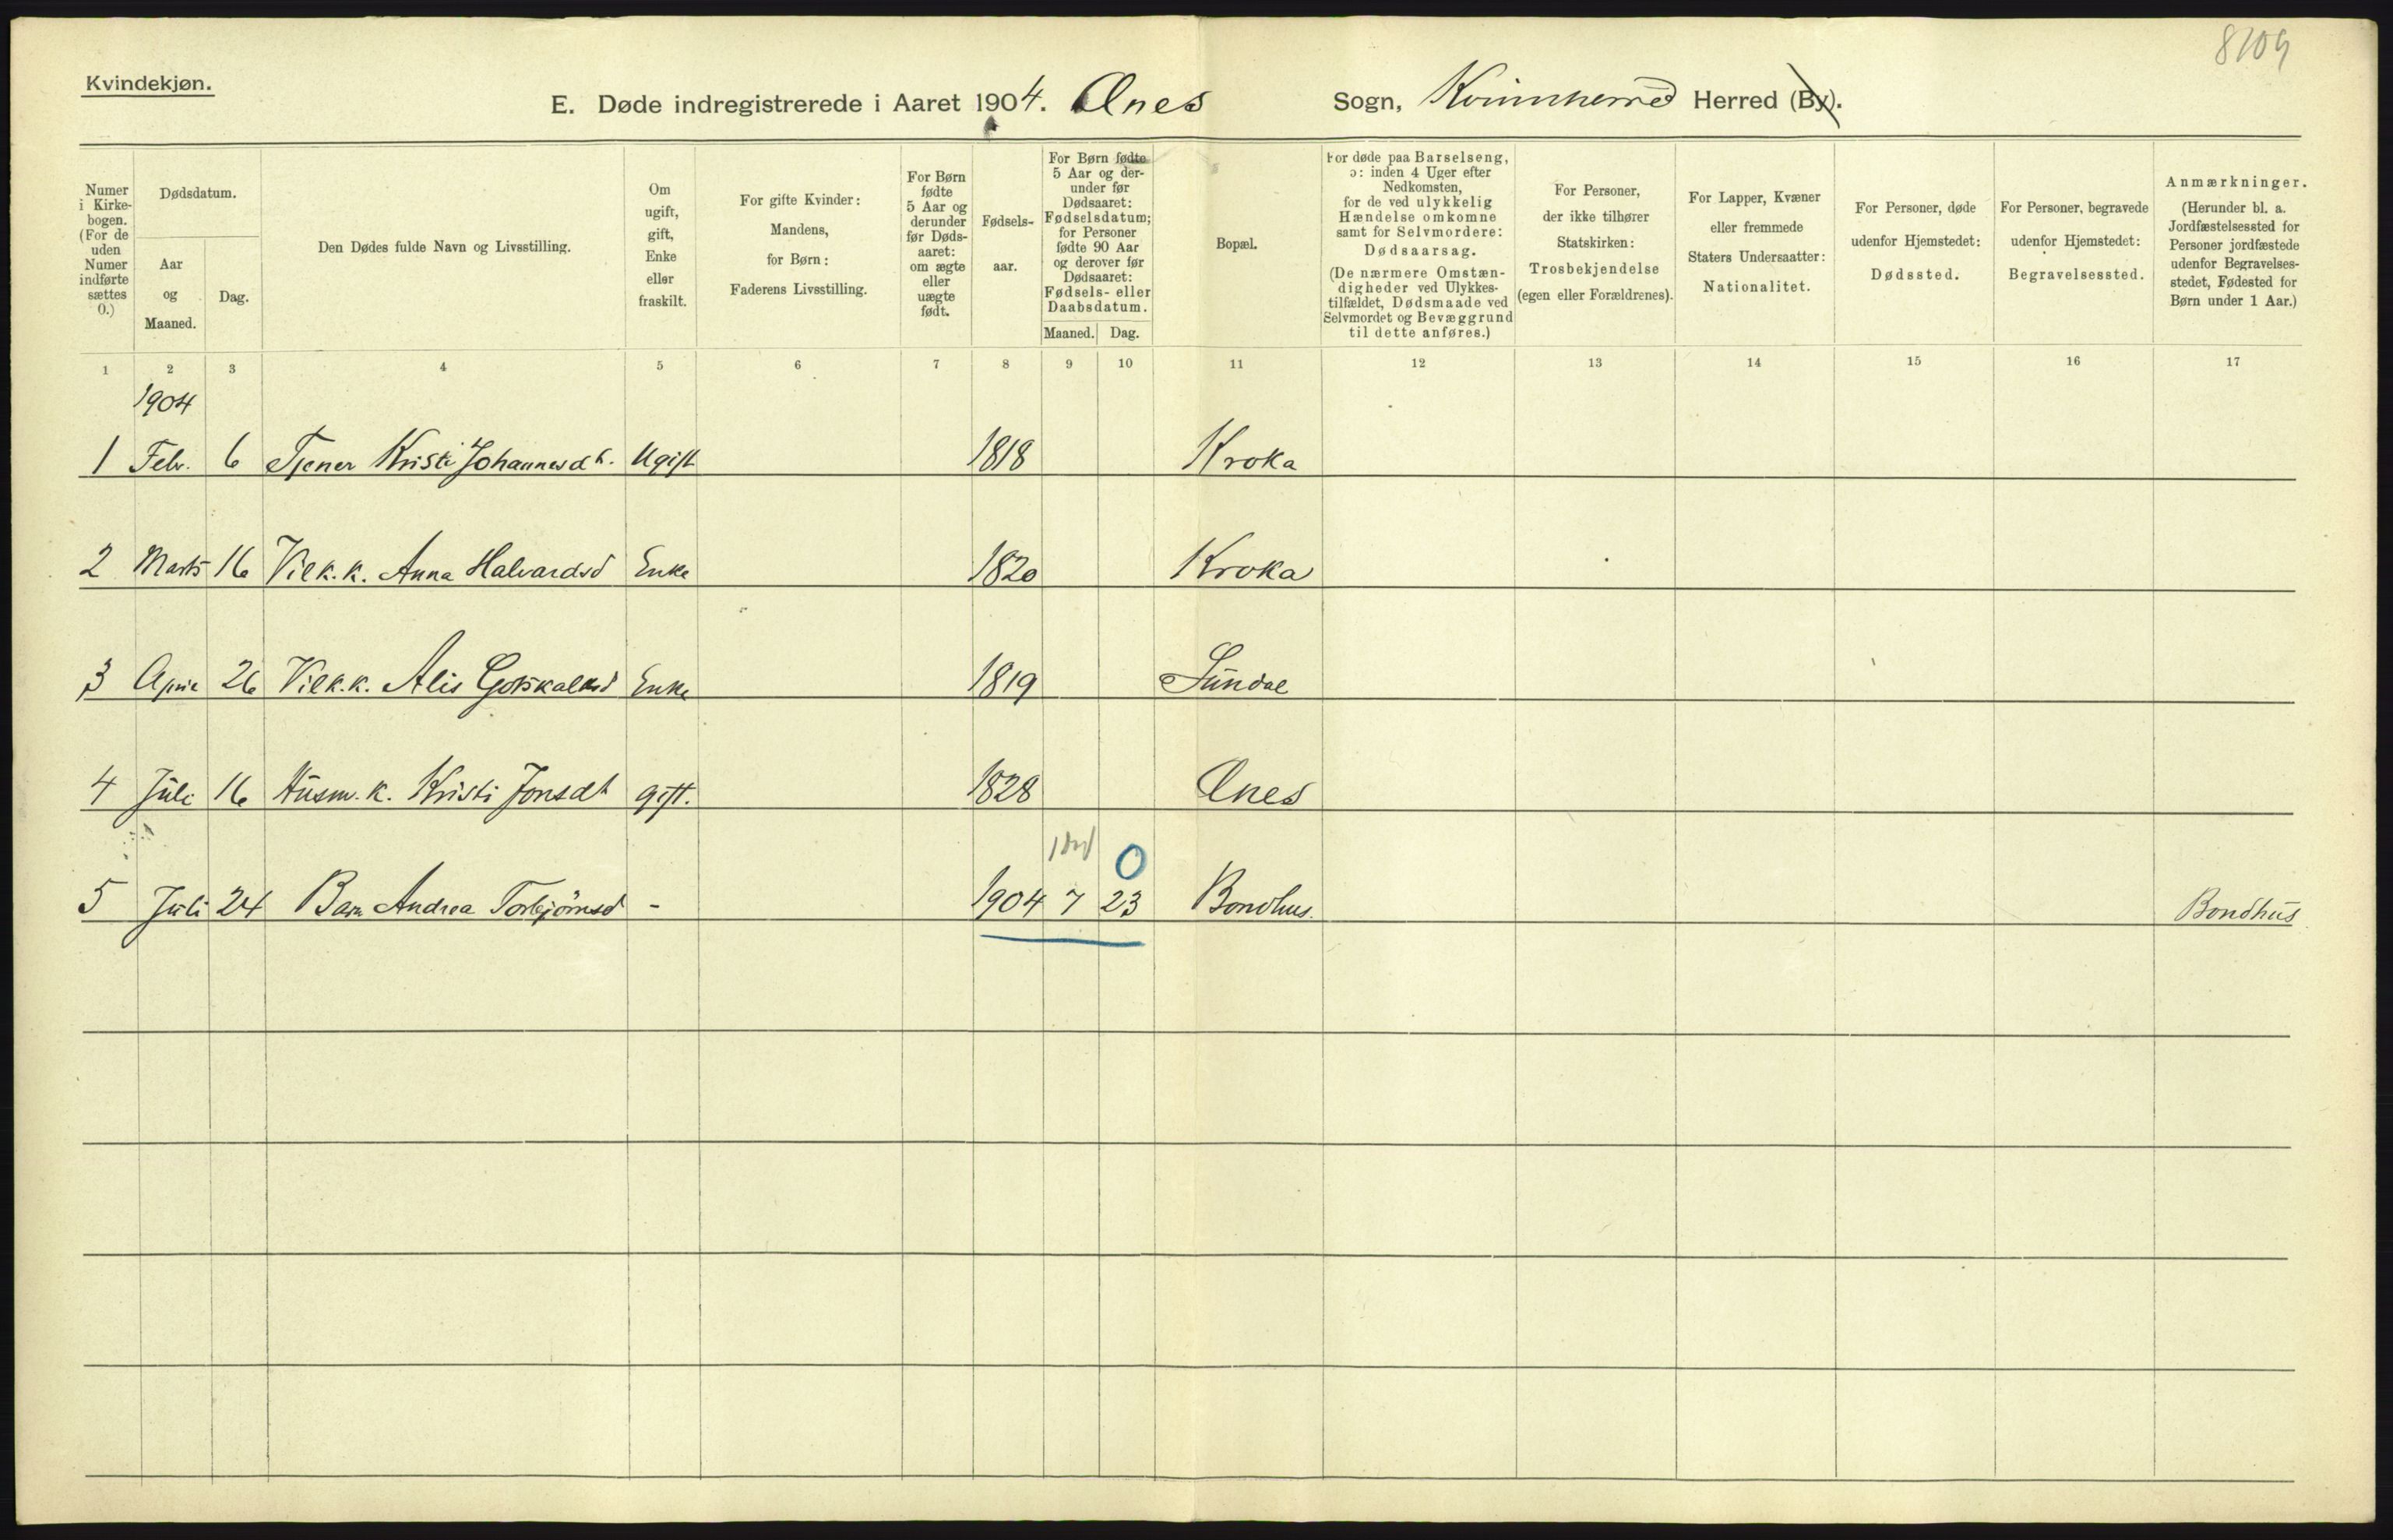 8109
Kvindekjøn.
E. Døde indregistrerede i Aaret 1904. Ænes Sogn, Kvinnherred Herred (By).
Numer
i Kirke-
bogen.
(For de
uden
Numer
indførte
sættes
0.)
Dødsdatum.
Aar
og
Maaned.
Dag.
Den Dødes fulde Navn og Livsstilling.
Om
ugift,
gift,
Enke
eller
fraskilt.
For gifte Kvinder:
Mandens,
for Børn:
Faderens Livsstilling.
For Børn
fødte
5 Aar og
derunder
før Døds-
aaret:
om ægte
eller
uægte
født.
Fødsels-
aar.
For Børn fødte
5 Aar og der-
under før
Dødsaaret:
Fødselsdatum;
for Personer
fødte 90 Aar
og derover før
Dødsaaret:
Fødsels- eller
Daabsdatum.
Maaned. Dag.
Bopæl.
For døde paa Barselseng,
ɔ: inden 4 Uger efter
Nedkomsten,
for de ved ulykkelig
Hændelse omkomne
samt for Selvmordere:
Dødsaarsag.
(De nærmere Omstæn-
digheder ved Ulykkes-
tilfældet, Dødsmaade ved
Selvmordet og Bevæggrund
til dette anføres.)
For Personer,
der ikke tilhører
Statskirken:
Trosbekjendelse
(egen eller Forældrenes).
For Lapper, Kvæner
eller fremmede
Staters Undersaatter:
Nationalitet.
For Personer, døde
udenfor Hjemstedet:
Dødssted.
For Personer, begravede
udenfor Hjemstedet:
Begravelsessted.
Anmærkninger.
(Herunder bl. a.
Jordfæstelsessted for
Personer jordfæstede
udenfor Begravelses-
stedet, Fødested for
Børn under 1 Aar.)
1 2 3 4 5 6 7 8 9 10 11 12 13 14 15 16 17
1904
1 Febr. 6 Tjener Kristi Johannesdt. Ugift 1818 Kroka
2 Marts 16 Vilk.k. Anna Halvardsd Enke 1820 Kroka
3 April 26 Vilk.k. Alis Gotskalksd Enke 1819 Sundal
4 Juli 16 Husm. k. Kristi Jonsdt gift. 1828 Ænes
0
5 Juli 24 Barn Andrea Torbjörnsd - 1904 7 23 Bondhus. Bondhus